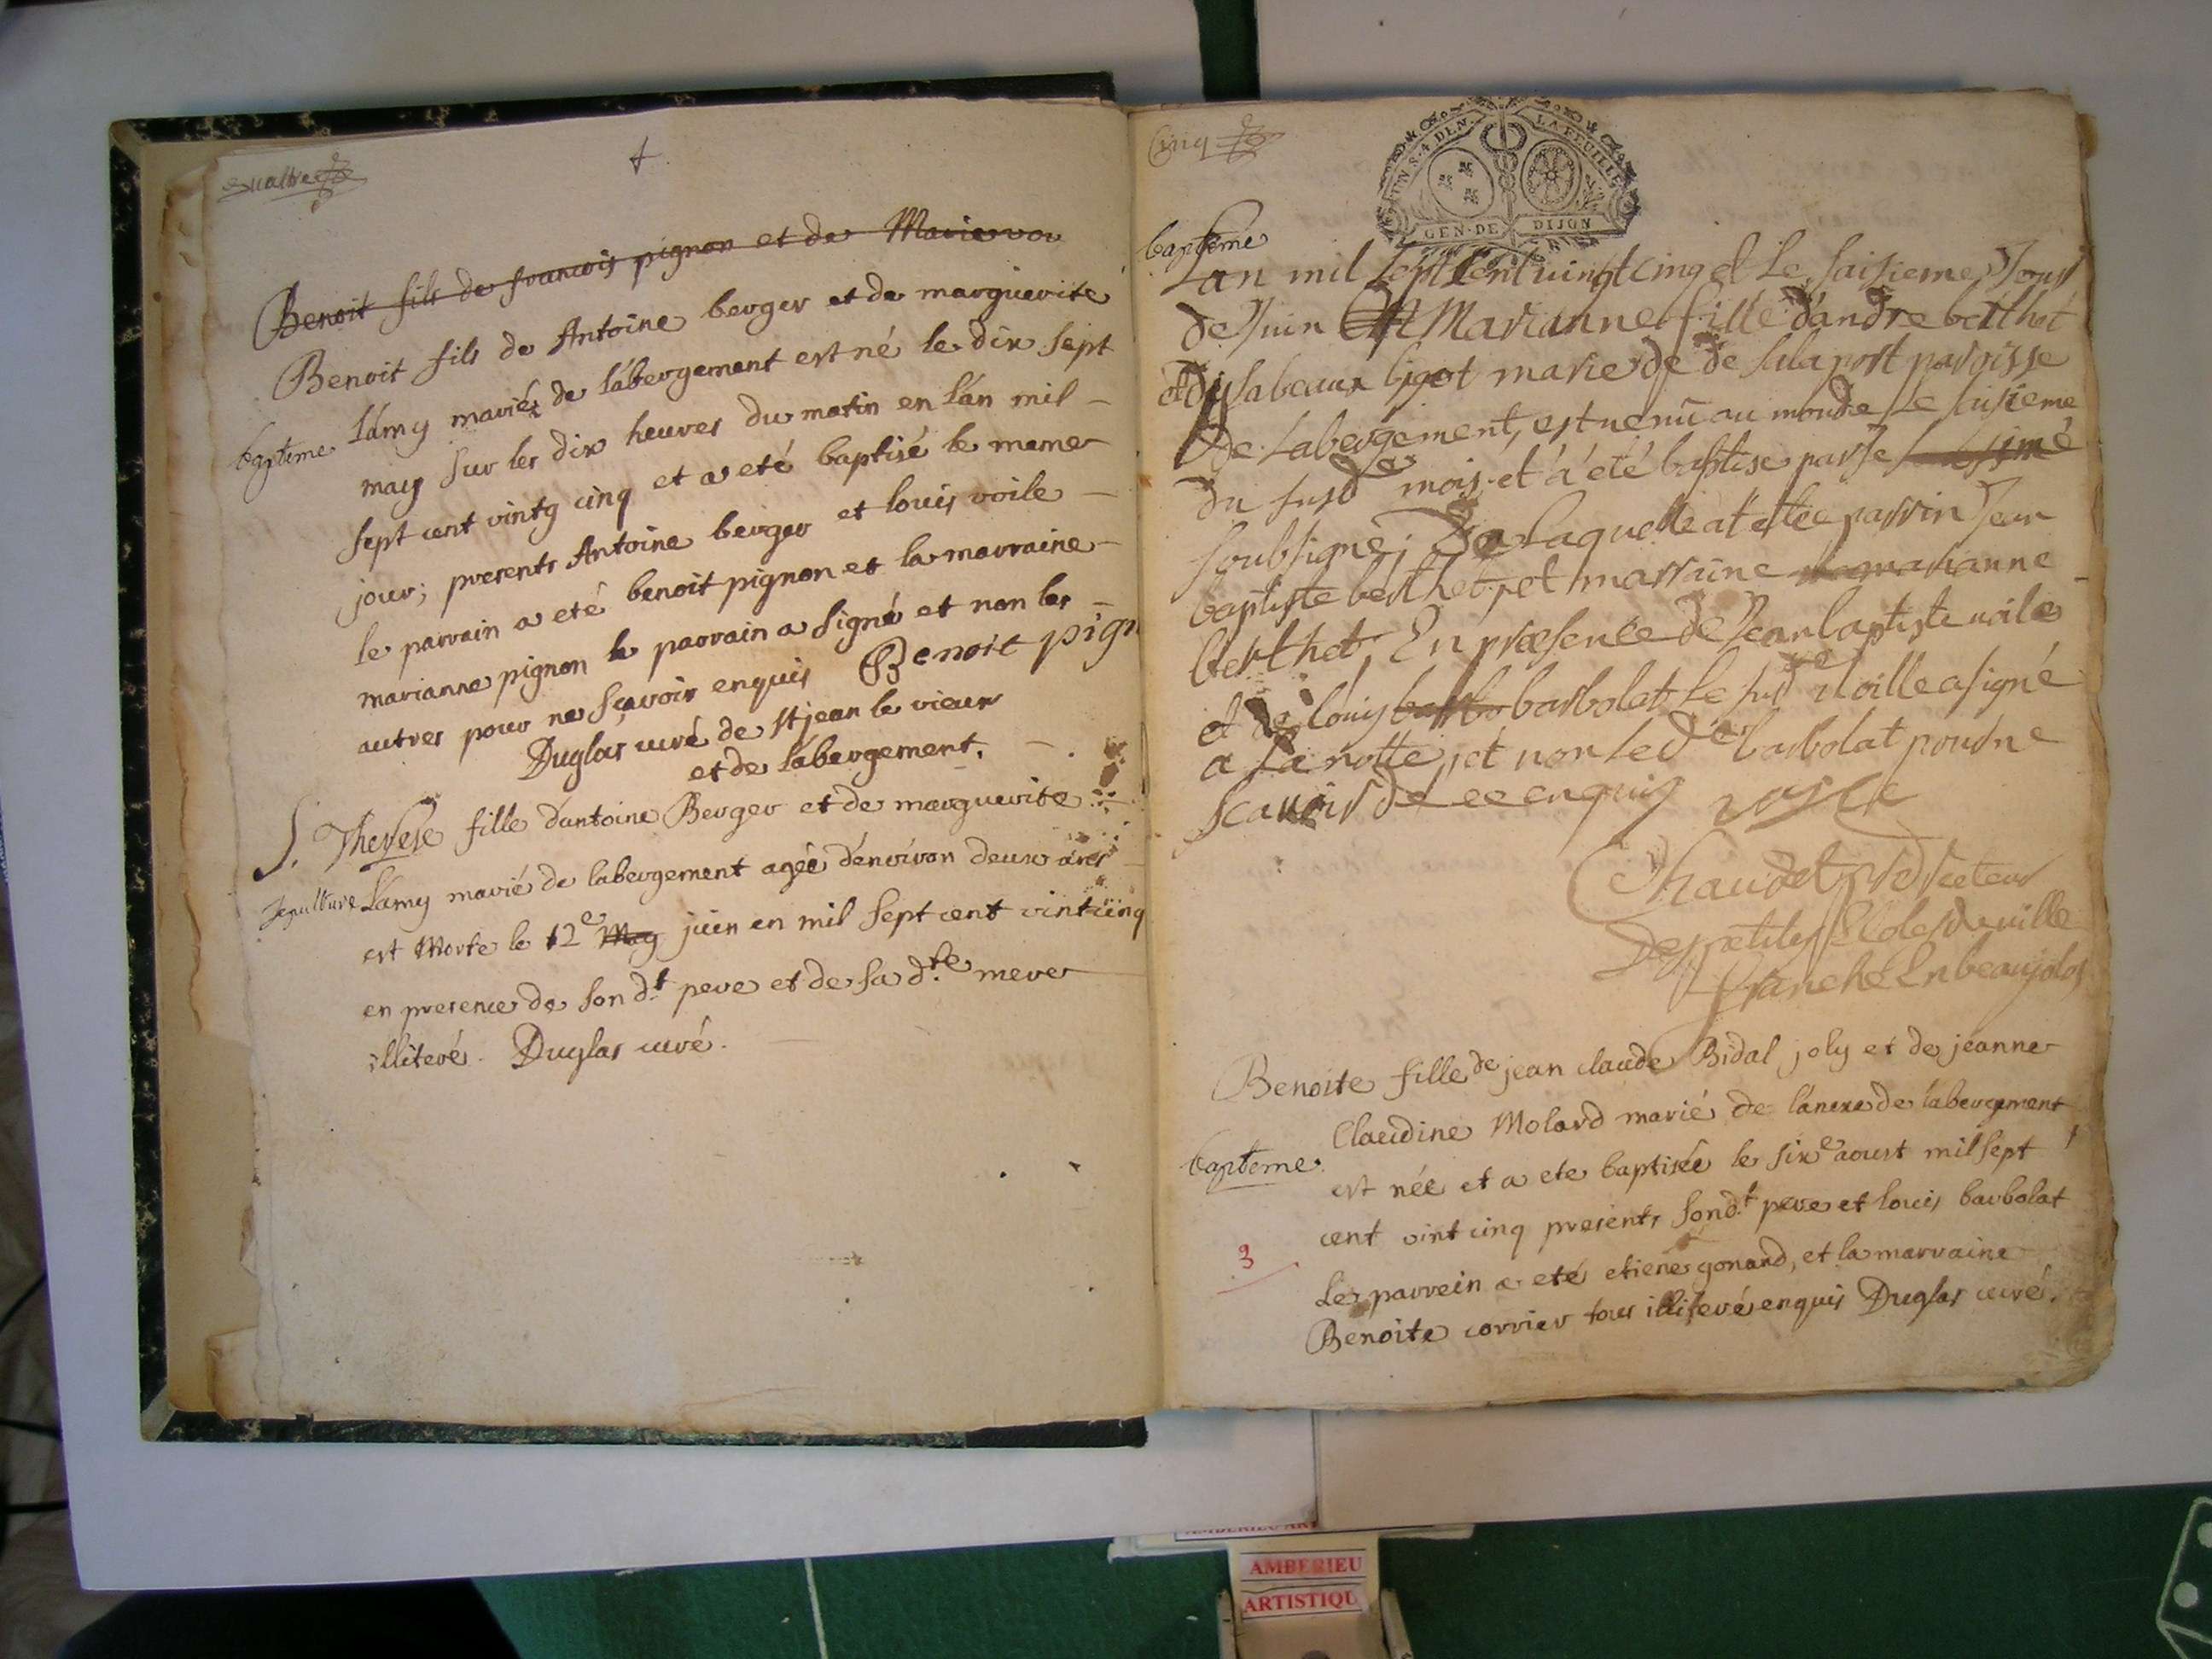 quatre
Benoit fils de francois pignon et de Marie vou
Benoit fils de Antoine berger et de marguerite
bapteme
Lámy mariés de lábergement est né le dix sept
may sur les dix heures du matin en lán mil –
sept cent vintg cinq et a eté baptisé le meme
jour; presents Antoine berger et louis voile –
le parrain a eté benoit pignon et la marraine –
marianne pignon le parrain a signé et non les –
autres pour ne sçavoir enquis Benoit pign
Duglas curé de st jean le vieux
et de lábergement.
S. Therese fille dántoine Berger et de marguerite
sepulture
Lámy marié de labergement agée dénviron deux ans
est Morte le 12e May juin en mil sept cent vint cinq
en presence de son dt pere et de sa dte mere
illiteré. Duglas curé.
Cinq
UN S. 4 DEN. LA FEUILLE
GEN. DE DIJON
baptême
Lan mil sept cent vingt cinq et Le saisieme Jour
de Juin Marianne fille dándre berthet
et dysabeaux bigot marie de de sulaport paroisse
de Labergement, est venu au monde Le saisieme
du susde mois et á été baptise par Je
soubsigné; De Laquelle at estée parrin Jean
baptiste berthet, et marraine marianne
berthet En præsence de Jean baptiste voile
et de loüis barbolat Le susde Voille a signé
a La notte, et non Led barbolat pour ne
scavoir de ce enquis voille
Chaudet pr recteur
Des petites Ecoles de ville
franche En beaujolos
Benoite fille de jean claude Bidal joly et de jeanne
Claudine Molard marié de lánexe de lábergement
bapteme.
est née et a ete baptisée le sixe aoust mil sept
cent vint cinq presents son dt pere et louis barbolat
3
Le parrein a eté etiene gonard, et la marraine
Benoite corrier tous illiteré enquis Duglas curé.
AMBERIEU
ARTISTIQU